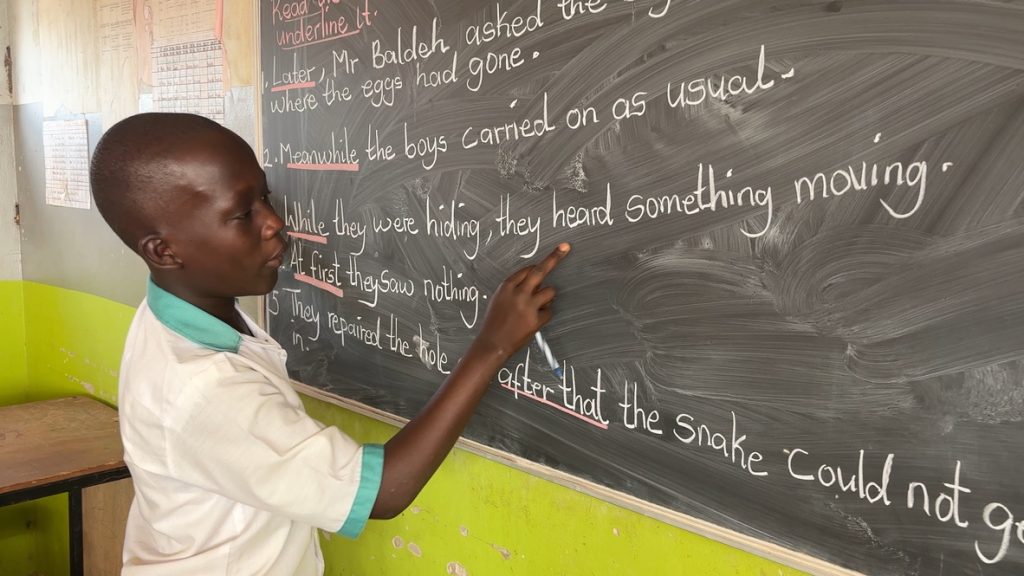 Read
underline it.
1. Later, Mr Baldeh asked the
where the eggs had gone.
2. Meanwhile the boys carried on as usual.
While they were hiding, they heard something moving.
At first they saw nothing.
5 They repaired the hole after that the snake could not
in.